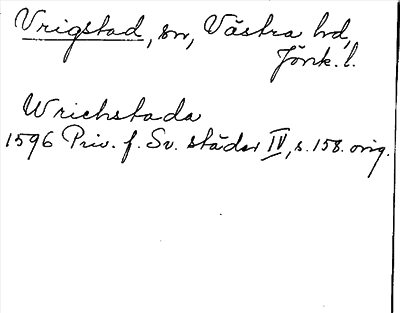 Vrigstad, sn, Västra hd,
Jönk. l.
Wrichstada
1596 Priv. f. Sv. städer IV, s. 158. orig.